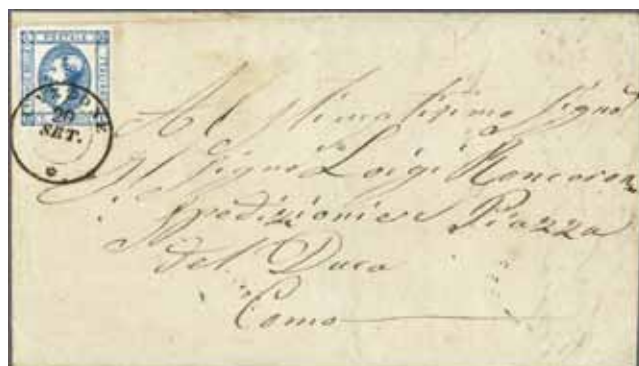 POSTALE
SET.
Al Stimatissimo Signor
Signor Luigi Roncoroni
Spedizioniere Piazza
del Duca
Como